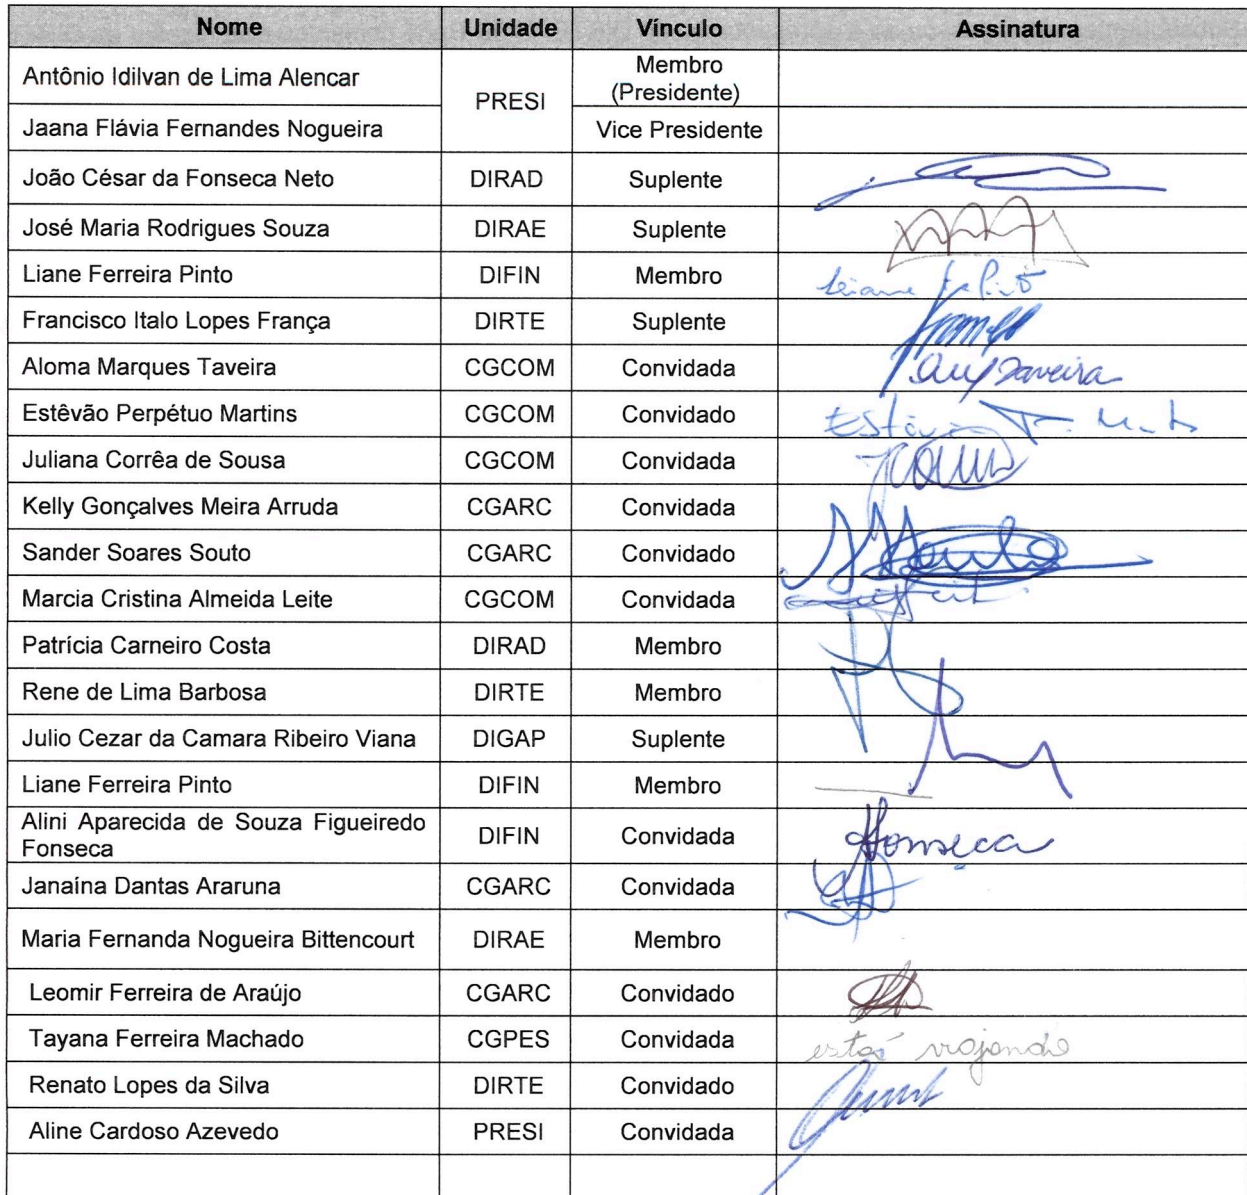 Nome Unidade Vínculo Assinatura
Antônio Idilvan de Lima Alencar PRESI Membro (Presidente)
Jaana Flávia Fernandes Nogueira Vice Presidente
João César da Fonseca Neto DIRAD Suplente
José Maria Rodrigues Souza DIRAE Suplente
Liane Ferreira Pinto DIFIN Membro
Francisco Italo Lopes França DIRTE Suplente
Aloma Marques Taveira CGCOM Convidada Taveira
Estêvão Perpétuo Martins CGCOM Convidado
Juliana Corrêa de Sousa CGCOM Convidada
Kelly Gonçalves Meira Arruda CGARC Convidada
Sander Soares Souto CGARC Convidado
Marcia Cristina Almeida Leite CGCOM Convidada
Patrícia Carneiro Costa DIRAD Membro
Rene de Lima Barbosa DIRTE Membro
Julio Cezar da Camara Ribeiro Viana DIGAP Suplente
Liane Ferreira Pinto DIFIN Membro
Alini Aparecida de Souza Figueiredo
Fonseca DIFIN Convidada Fonseca
Janaína Dantas Araruna CGARC Convidada
Maria Fernanda Nogueira Bittencourt DIRAE Membro
Leomir Ferreira de Araújo CGARC Convidado
Tayana Ferreira Machado CGPES Convidada está viajando
Renato Lopes da Silva DIRTE Convidado
Aline Cardoso Azevedo PRESI Convidada